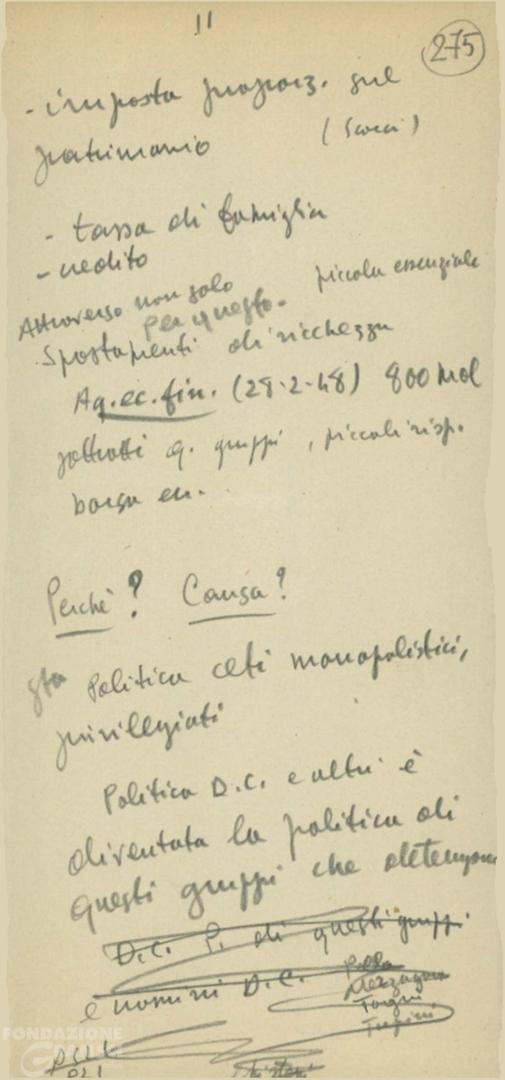 11
275
- imposta proporz. sul
patrimonio (Scocci)
- tassa di famiglia
- credito
Attraverso non solo piccola essenziale
per questo.
Spostamenti di ricchezza
Ag. ec. fin. (28-2-48) 800 mol
sottratti q. gruppi, piccoli risp.
borsa
Perchè? Causa?
sta Politica ceti monopolistici,
privilegiati
Politica D.C. e altri è
diventata la politica di
questi gruppi che detengono
D.C. P. di questi gruppi
e uomini D.C. Pella
Merzagora
Togni
Tupini
FONDAZIONE
PSLI
PLI